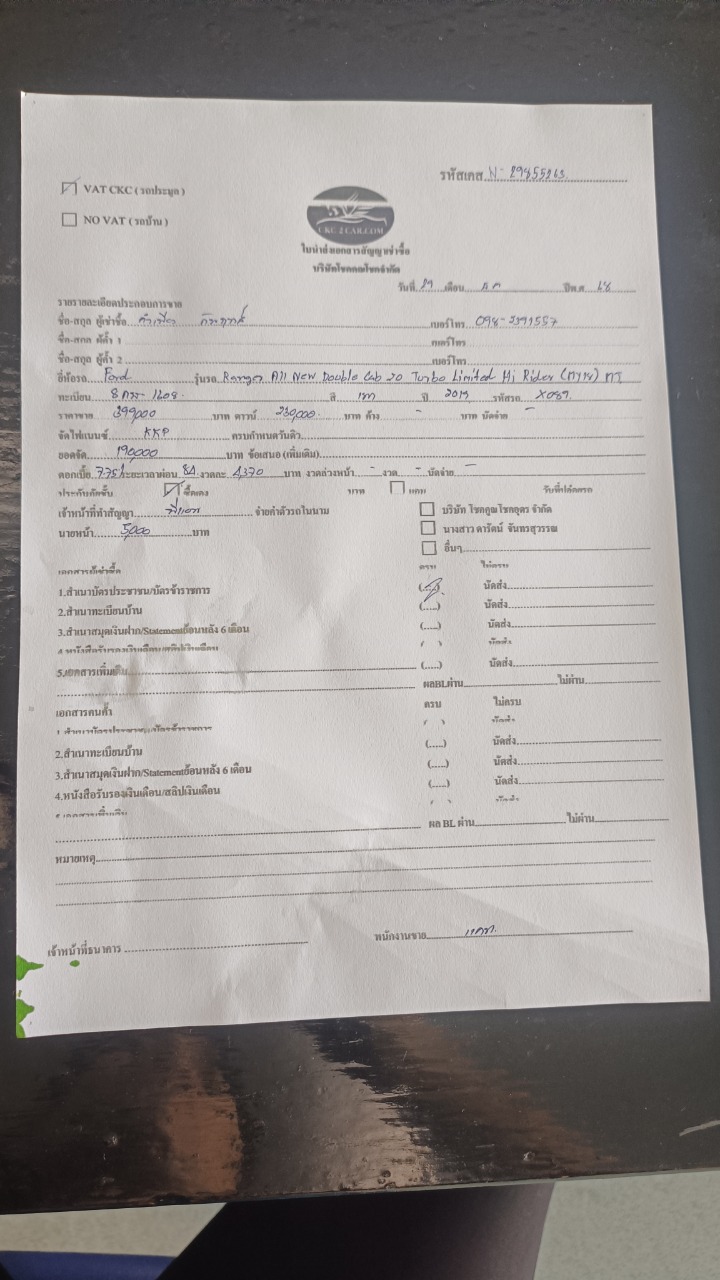 รหัสเคส N-29855263
VAT CKC ( รถประมูล )
NO VAT ( รถบ้าน )
CKC 2 CAR.COM
ใบนำส่งเอกสารสัญญาเช่าซื้อ
บริษัทโชคคูณโชคจำกัด
วันที่ 29 เดือน ปีพ.ศ. 68
รายรายละเอียดประกอบการขาย
ชื่อ-สกุล ผู้เช่าซื้อ เบอร์โทร 098-2391557
ชื่อ-สกุล ผู้ค้ำ 1 เบอร์โทร
ชื่อ-สกุล ผู้ค้ำ 2 เบอร์โทร
ยี่ห้อรถ Ford รุ่นรถ Ranger All New Double Cab 2.0 Turbo Limited Hi Rider (MY19) MT
ทะเบียน 1208 สี เทา ปี 2019 รหัสรถ X087
ราคาขาย 399,000 บาท ดาวน์ 239,000 บาท ค้าง - บาท นัดจ่าย -
จัดไฟแนนซ์ KKP ครบกำหนดวันดิว
ยอดจัด 190,000 บาท ข้อเสนอ (เพิ่มเติม)
ดอกเบี้ย 7.75% ระยะเวลาผ่อน 84 งวดละ 4,370 บาท งวดล่วงหน้า - งวด - นัดจ่าย -
ประกันภัยชั้น ซื้อเอง บาท แถม วันที่ปล่อยรถ
เจ้าหน้าที่ทำสัญญา จ่ายค่าตัวรถในนาม บริษัท โชคคูณโชคอุดร จำกัด
นายหน้า 5,000 บาท นางสาว ดารัตน์ จันทรสุวรรณ
อื่นๆ
เอกสารผู้เช่าซื้อ ครบ ไม่ครบ
1.สำเนาบัตรประชาชน/บัตรข้าราชการ (.....) นัดส่ง
2.สำเนาทะเบียนบ้าน (.....) นัดส่ง
3.สำเนาสมุดเงินฝาก/Statementย้อนหลัง 6 เดือน (.....) นัดส่ง
4.หนังสือรับรองเงินเดือน/สลิปเงินเดือน ( ) นัดส่ง
5.เอกสารเพิ่มเติม (.....) นัดส่ง
ผลBLผ่าน ไม่ผ่าน
เอกสารคนค้ำ ครบ ไม่ครบ
1.สำเนาบัตรประชาชน/บัตรข้าราชการ ( ) นัดส่ง
2.สำเนาทะเบียนบ้าน (.....) นัดส่ง
3.สำเนาสมุดเงินฝาก/Statementย้อนหลัง 6 เดือน (.....) นัดส่ง
4.หนังสือรับรองเงินเดือน/สลิปเงินเดือน (.....) นัดส่ง
5.เอกสารเพิ่มเติม ( ) นัดส่ง
ผล BL ผ่าน ไม่ผ่าน
หมายเหตุ
เจ้าหน้าที่ธนาคาร พนักงานขาย